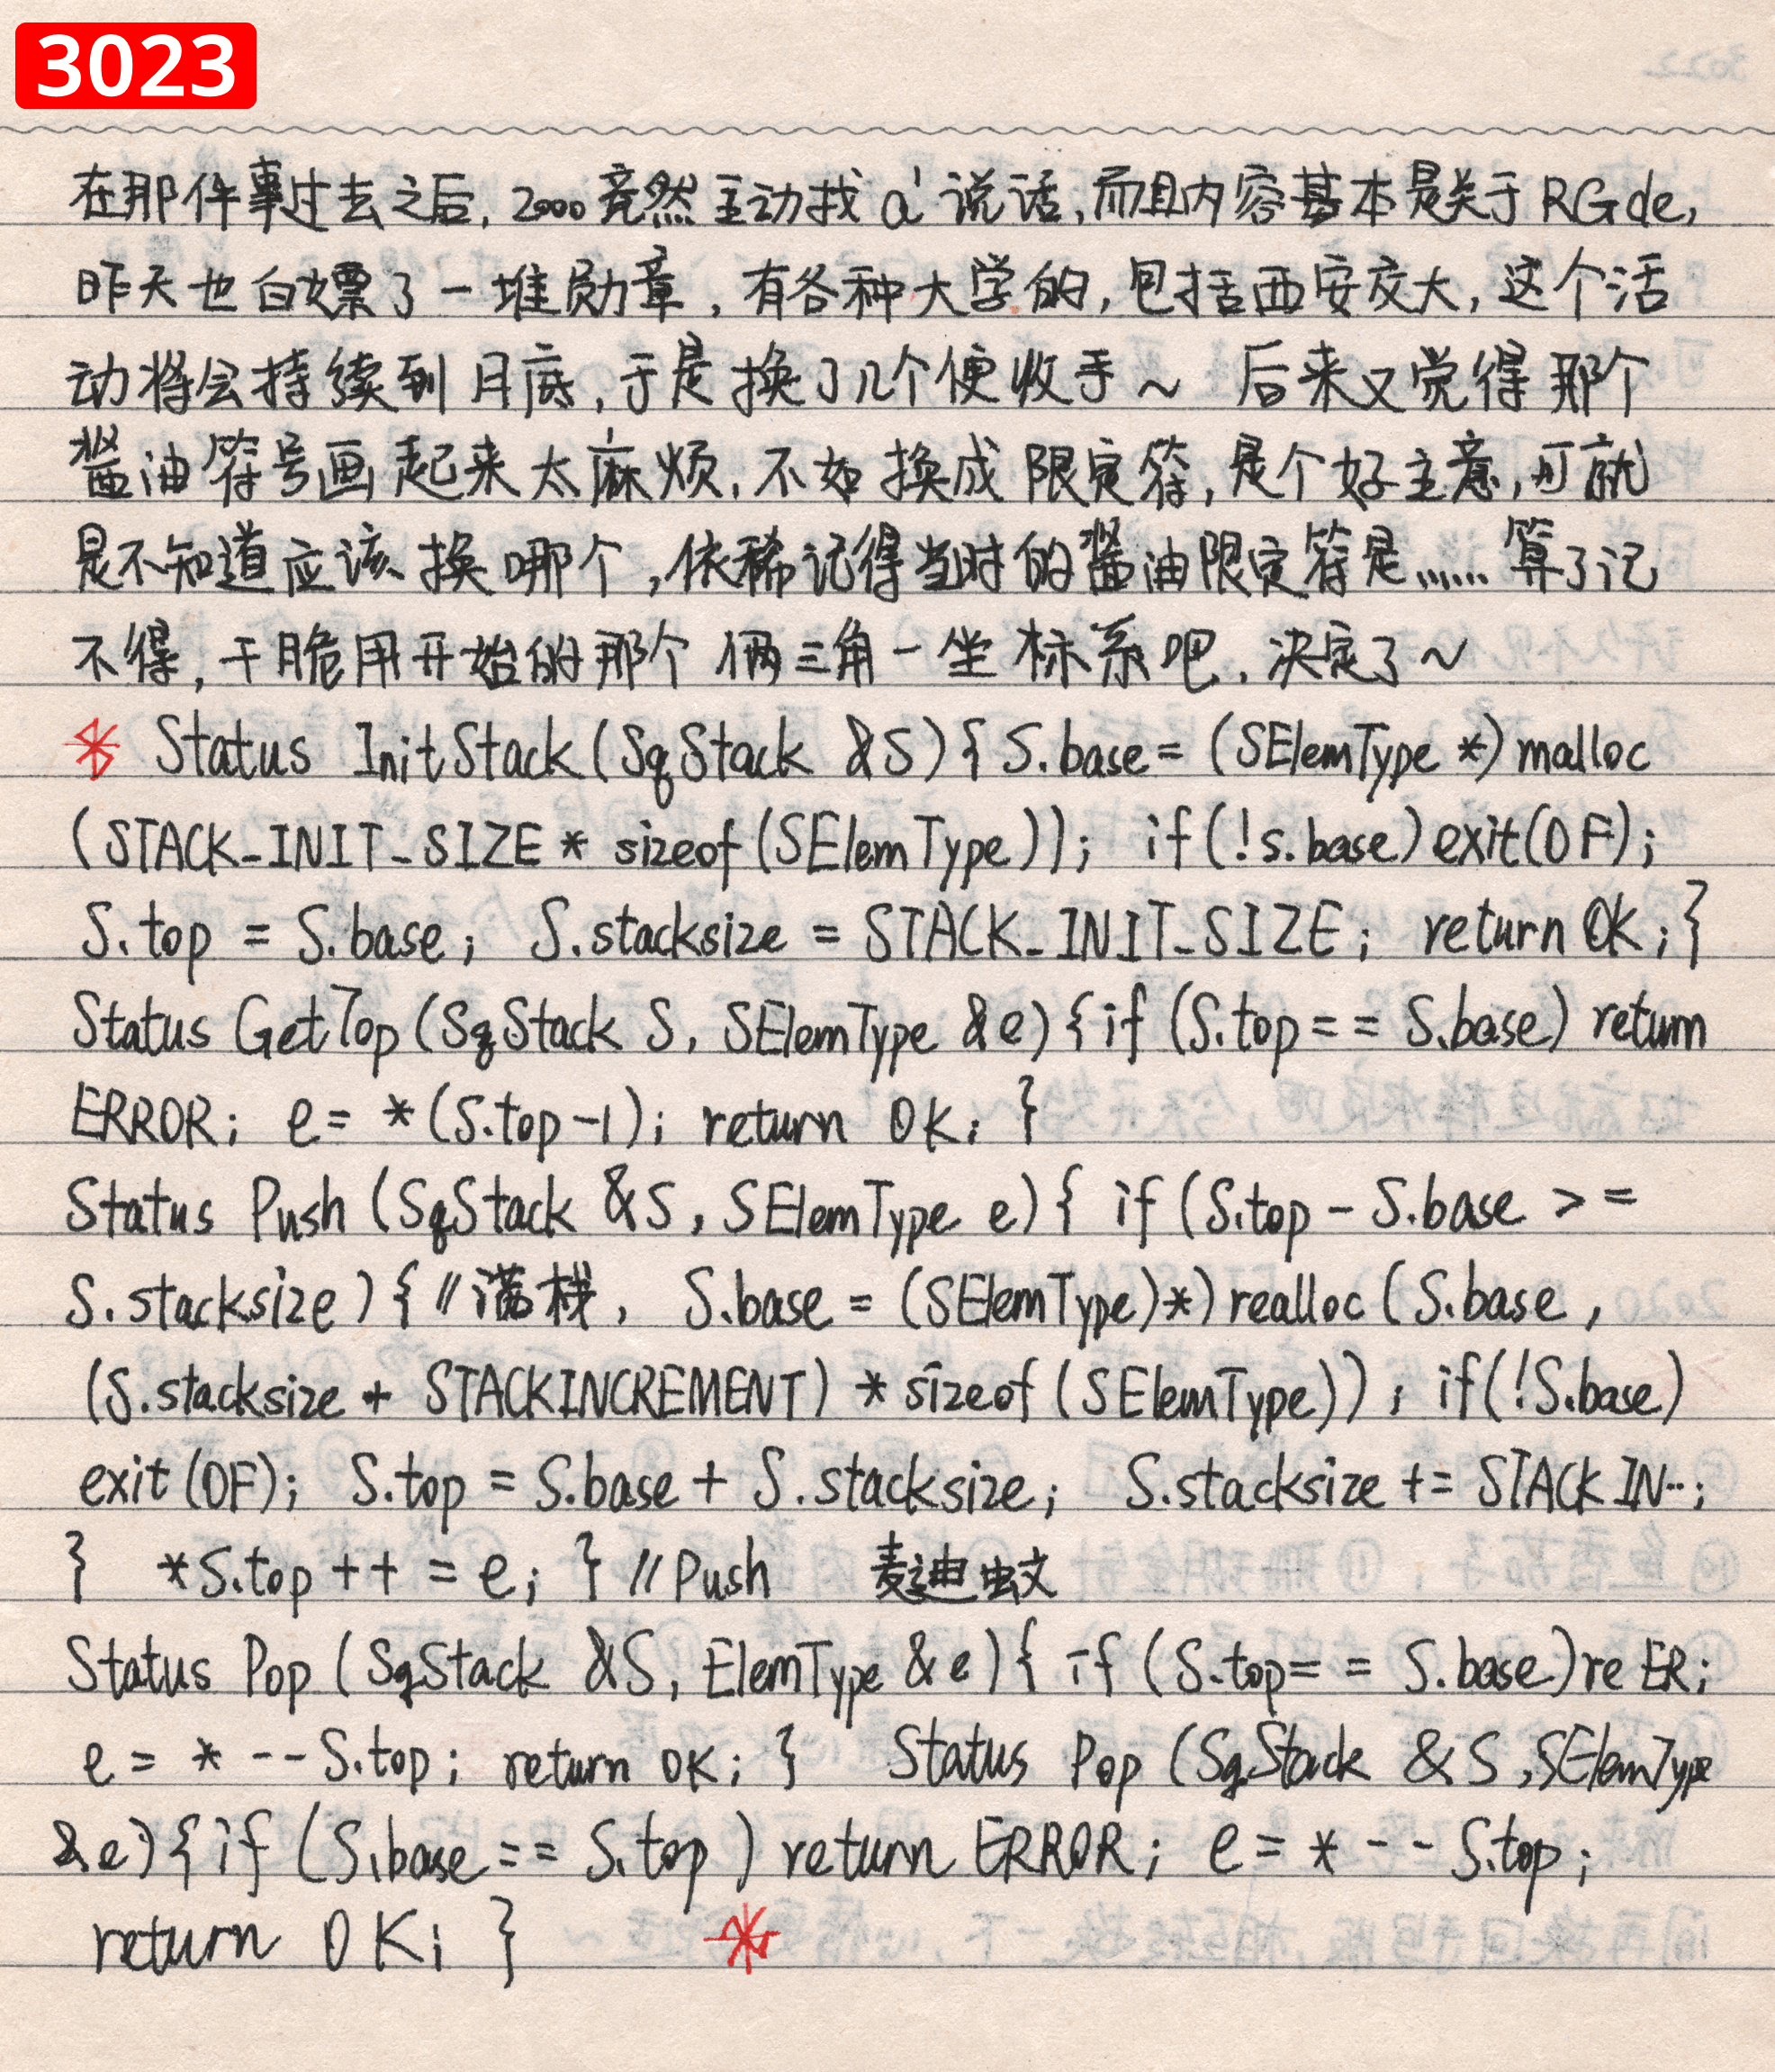 3023
在那件事过去之后,2000竟然主动找a'说话,而且内容基本是关于RGde,
昨天也白嫖了一堆勋章,有各种大学的,包括西安交大,这个活
动将会持续到月底,于是换了几个便收手~ 后来又觉得那个
酱油符号画起来太麻烦,不如换成限定符,是个好主意,可就
是不知道应该换哪个,依稀记得当时的酱油限定符是……算了记
不得,干脆用开始的那个俩三角一坐标系吧,决定了~
* Status InitStack(SqStack &S){S.base=(SElemType *)malloc
(STACK_INIT_SIZE * sizeof(SElemType)); if(!s.base)exit(OF);
S.top = S.base; S.stacksize = STACK_INIT_SIZE; return OK;}
Status GetTop(SqStack S, SElemType &e){if (S.top== S.base) return
ERROR; e= *(S.top-1); return OK; }
Status Push (SqStack &S, SElemType e){ if (S.top - S.base >=
S.stacksize){//满栈, S.base = (SElemType)*)realloc(S.base,
(S.stacksize + STACKINCREMENT) * sizeof(SElemType)); if(!S.base)
exit(OF); S.top = S.base + S.stacksize; S.stacksize += STACKIN…;
} *S.top++ = e; } //Push 麦迪蚊
Status Pop (SqStack &S, ElemType &e){ if (S.top== S.base)re ER;
e = * --S.top; return OK; } Status Pop (SqStack &S,SElemType
&e){if (S.base == S.top) return ERROR; e = * --S.top;
return OK; } *